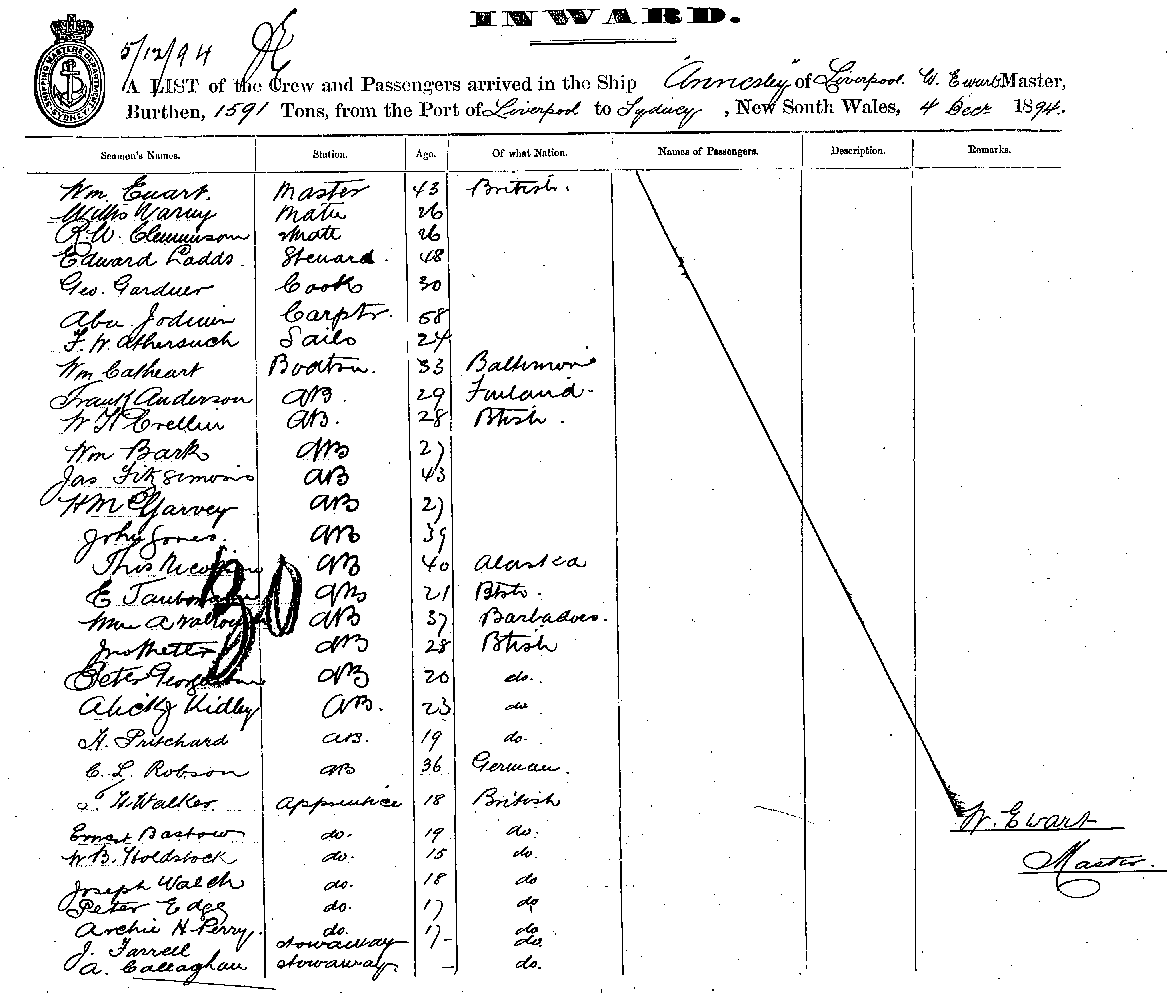 INWARD.
5/12/94
A LIST of the Crew and Passengers arrived in the Ship "Annesley" of Liverpool. W. Ewart Master,
Burthen, 1591 Tons, from the Port of Liverpool to Sydney, New South Wales, 4 Decr 1894.
SHIPPING MASTERS DEPARTMENT SYDNEY
Seamen's Names. Station. Age. Of what Nation. Names of Passengers. Description. Remarks.
Wm. Ewart. Master 43 British.
Mate 26
R.W. Clemmson Mate 26
Edward Ladds. Steward. 48
Geo. Gardner Cook 30
Carptr. 58
F. W. Athersuch Sails 24
Wm Cathcart Boatsn. 33 Baltimore
Frank Anderson AB. 29 Finland.
W H Crellin AB. 28 Btish.
Wm Bark AB 27
Jas Fitzsimons AB 43
H McGarvey AB 27
John Jones. AB 39
Thos AB 40 Alaska
E AB 21
Wm A AB 37 Barbadoes.
Jno AB 28 Btish
Peter AB 20 do.
Alick Kidley AB. 23 do
H. Pritchard AB. 19 do.
C. L. Robson AB 36 German.
Walker Apprentice 18 British
Ernest Bastow do. 19 do.
W B. Holdstock do. 15 do.
Joseph Walch do. 18 do
Peter Edge do. 17 do
Archie H Perry. do. 17 do
J. Farrell stowaway - do.
A. Callaghan stowaway. - do.
30
W. Ewart
Master.